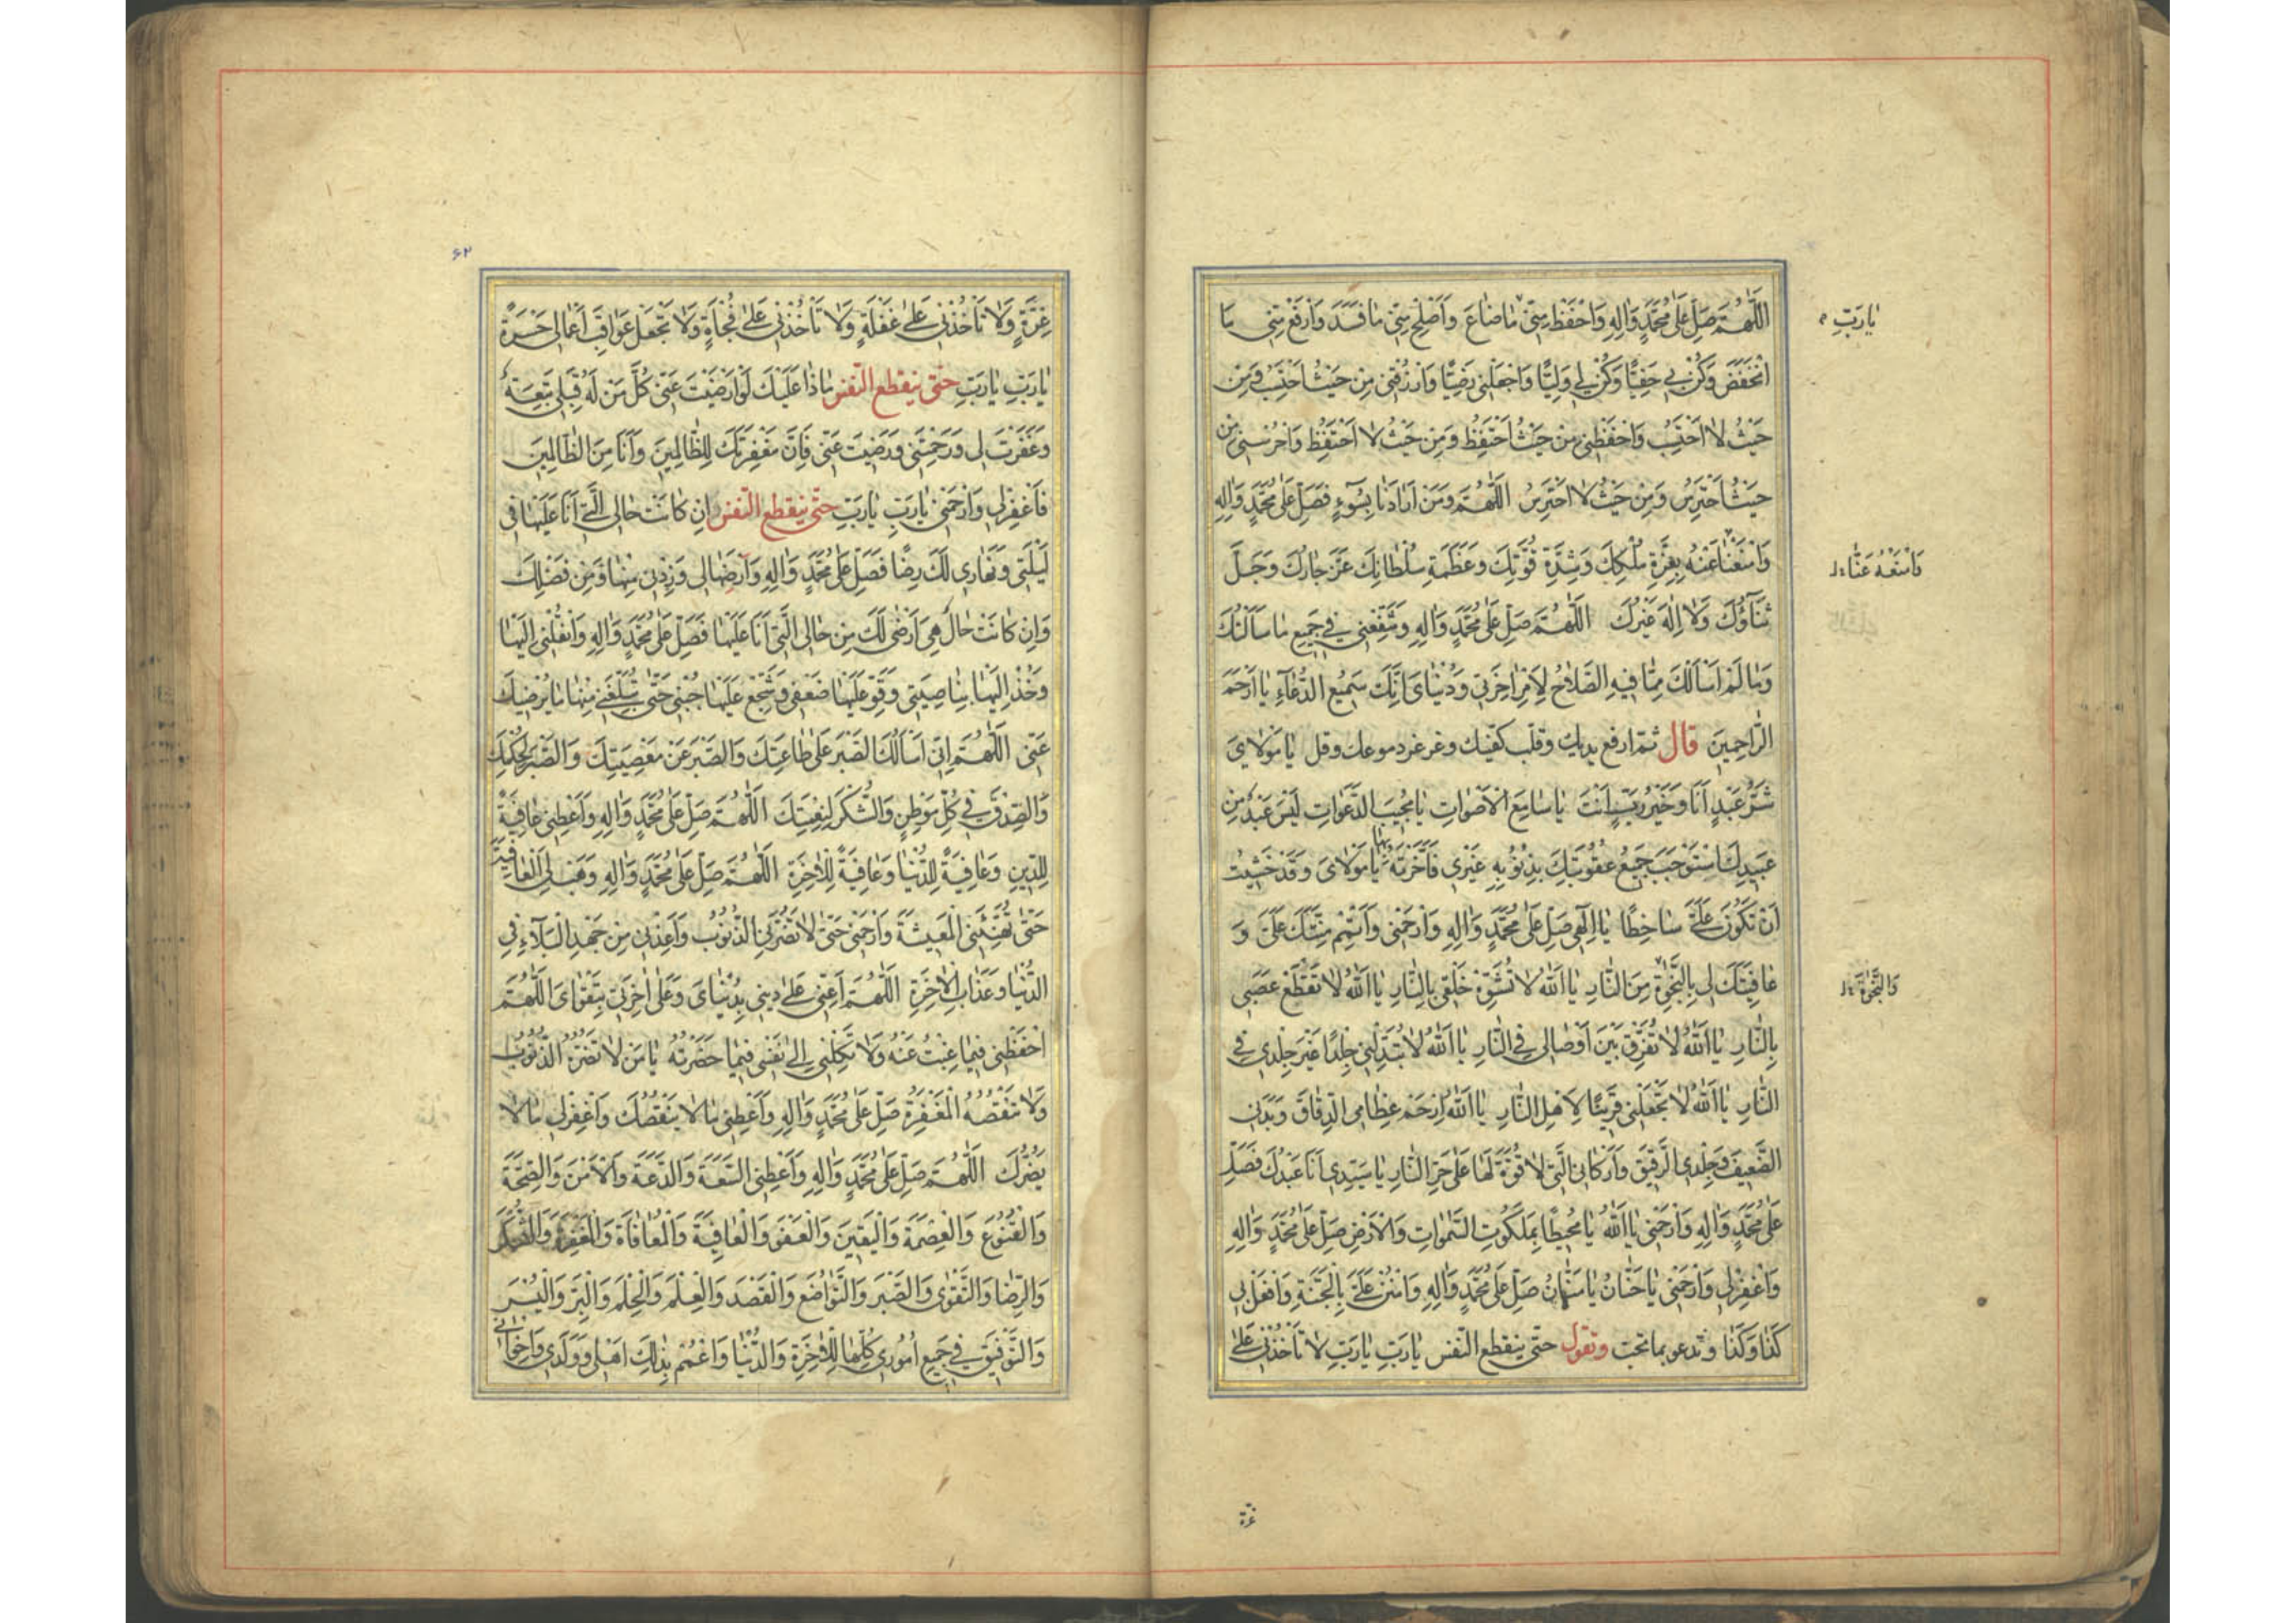 اَللّٰهُمَّ صَلِّ عَلىٰ مُحَمَّدٍ وَاٰلِهِ وَاحْفَظْ مِنّى مٰا ضٰاعَ وَاَصْلِحْ مِنّى مٰا فَسَدَ وَارْفَعْ مِنّى مٰا
يٰارَبِّ
انْخَفَضَ وَكُنْ بى حَفِيّاً وَكُنْ لى وَلِيّاً وَاجْعَلْنى رَضِيّاً وَارْزُقْنى مِنْ حَيْثُ اَحْتَسِبُ وَمِنْ
حَيْثُ لاٰ اَحْتَسِبُ وَاحْفَظْنى مِنْ حَيْثُ اَحْتَفِظُ وَمِنْ حَيْثُ لاٰ اَحْتَفِظُ وَاحْرُسْنى مِنْ
حَيْثُ اَحْتَرِسُ وَمِنْ حَيْثُ لاٰ اَحْتَرِسُ اَللّٰهُمَّ وَمَنْ اَرٰادَنٰا بِسُوٓءٍ فَصَلِّ عَلىٰ مُحَمَّدٍ وَاٰلِهِ
وَامْنَعْنٰا عَنْهُ بِعِزَّةِ مُلْكِكَ وَشِدَّةِ قُوَّتِكَ وَعَظَمَةِ سُلْطٰانِكَ عَزَّ جٰارُكَ وَجَلَّ
وَامْنَعْهُ عَنّٰا
ثَنٰآؤُكَ وَلاٰ اِلٰهَ غَيْرُكَ اَللّٰهُمَّ صَلِّ عَلىٰ مُحَمَّدٍ وَاٰلِهِ وَشَفِّعْنى فى جَميعِ مٰا سَاَلْتُكَ
وَمٰا لَمْ اَسْاَلْكَ مِمّٰا فيهِ الصَّلاٰحُ لِاَمْرِ اٰخِرَتى وَدُنْيٰاىَ اِنَّكَ سَميعُ الدُّعٰآءِ يٰا اَرْحَمَ
الرّٰاحِمينَ قال ثمّ ارفع يديك وقلّب كفّيك وغرغر دموعك وقل يٰا مَوْلاٰىَ
شَرُّ عَبْدٍ اَنَا وَخَيْرُ رَبٍّ اَنْتَ يٰا سٰامِعَ الْاَصْوٰاتِ يٰا مُجيبَ الدَّعَوٰاتِ لَيْسَ عَبْدٌ مِنْ
عَبيدِكَ اسْتَوْجَبَ جَميعَ عُقُوبَتِكَ بِذُنُوبِهِ غَيْرى فَاَخَّرْتَهُ بِهٰا يٰا مَوْلاٰىَ وَقَدْ خَشيتُ
اَنْ تَكُونَ عَلَىَّ سٰاخِطاً يٰا اِلٰهى صَلِّ عَلىٰ مُحَمَّدٍ وَاٰلِهِ وَارْحَمْنى وَاَتْمِمْ مِنَّتَكَ عَلَىَّ وَ
عٰافِيَتَكَ لى بِالنَّجٰوةِ مِنَ النّٰارِ يٰا اَللّٰهُ لاٰ تُشَوِّهْ خَلْقى بِالنّٰارِ يٰا اَللّٰهُ لاٰ تُقَطِّعْ عَصَبى
وَالنَّجٰوةِ
بِالنّٰارِ يٰا اَللّٰهُ لاٰ تُفَرِّقْ بَيْنَ اَوْصٰالى فِى النّٰارِ يٰا اَللّٰهُ لاٰ تُبَدِّلْنى جِلْداً غَيْرَ جِلْدى فِى
النّٰارِ يٰا اَللّٰهُ لاٰ تَجْعَلْنى قَريناً لِاَهْلِ النّٰارِ يٰا اَللّٰهُ اِرْحَمْ عِظٰامِى الدِّقٰاقَ وَبَدَنِى
الضَّعيفَ وَجِلْدِى الرَّقيقَ وَاَرْكٰانِى الَّتى لاٰ قُوَّةَ لَهٰا عَلىٰ حَرِّ النّٰارِ يٰا سَيِّدى اَنَا عَبْدُكَ فَصَلِّ
عَلىٰ مُحَمَّدٍ وَاٰلِهِ وَارْحَمْنى يٰا اَللّٰهُ يٰا مُحيطاً بِمَلَكُوتِ السَّمٰوٰاتِ وَالْاَرْضِ صَلِّ عَلىٰ مُحَمَّدٍ وَاٰلِهِ
وَاغْفِرْلى وَارْحَمْنى يٰا حَنّٰانُ يٰا مَنّٰانُ صَلِّ عَلىٰ مُحَمَّدٍ وَاٰلِهِ وَامْنُنْ عَلَىَّ بِالْجَنَّةِ وَافْعَلْ بى
كَذٰا وَكَذٰا وتدعو بما تحبّ وتقول حتّى ينقطع النّفس يٰا رَبِّ يٰا رَبِّ لاٰ تَأْخُذْنى عَلىٰ
غرّة
۶۲
غِرَّةٍ وَلاٰ تَأْخُذْنى عَلىٰ غَفْلَةٍ وَلاٰ تَأْخُذْنى عَلىٰ فُجْأَةٍ وَلاٰ تَجْعَلْ عَوٰاقِبَ اَعْمٰالى حَسْرَةً
يٰا رَبِّ يٰا رَبِّ حتّى ينقطع النّفس مٰا ذٰا عَلَيْكَ لَوْ اَرْضَيْتَ عَنّى كُلَّ مَنْ لَهُ قِبَلى تَبِعَةٌ
وَغَفَرْتَ لى وَرَحِمْتَنى وَرَضيتَ عَنّى فَاِنَّ مَغْفِرَتَكَ لِلظّٰالِمينَ وَاَنَا مِنَ الظّٰالِمينَ
فَاغْفِرْلى وَارْحَمْنى يٰا رَبِّ يٰا رَبِّ حتّى ينقطع النّفس اِنْ كٰانَتْ حٰالِى الَّتى اَنَا عَلَيْهٰا فى
لَيْلَتى وَنَهٰارى لَكَ رِضاً فَصَلِّ عَلىٰ مُحَمَّدٍ وَاٰلِهِ وَارْضَهٰا لى وَزِدْنى مِنْهٰا وَمِنْ فَضْلِكَ
وَاِنْ كٰانَتْ حٰالٌ هِىَ اَرْضىٰ لَكَ مِنْ حٰالِى الَّتى اَنَا عَلَيْهٰا فَصَلِّ عَلىٰ مُحَمَّدٍ وَاٰلِهِ وَانْقُلْنى اِلَيْهٰا
وَخُذْ اِلَيْهٰا بِنٰاصِيَتى وَقَوِّ عَلَيْهٰا ضَعْفى وَشَجِّعْ عَلَيْهٰا جُبْنى حَتّىٰ تُبَلِّغَنى مِنْهٰا مٰا يُرْضيكَ
عَنّى اَللّٰهُمَّ اِنّى اَسْاَلُكَ الصَّبْرَ عَلىٰ طٰاعَتِكَ وَالصَّبْرَ عَنْ مَعْصِيَتِكَ وَالصَّبْرَ لِحُكْمِكَ
وَالصِّدْقَ فى كُلِّ مَوْطِنٍ وَالشُّكْرَ لِنِعْمَتِكَ اَللّٰهُمَّ صَلِّ عَلىٰ مُحَمَّدٍ وَاٰلِهِ وَاَعْطِنى عٰافِيَةً
لِلدّينِ وَعٰافِيَةً لِلدُّنْيٰا وَعٰافِيَةً لِلْاٰخِرَةِ اَللّٰهُمَّ صَلِّ عَلىٰ مُحَمَّدٍ وَاٰلِهِ وَهَبْ لِىَ الْعٰافِيَةَ
حَتّىٰ تُهَنِّئَنِى الْمَعيشَةَ وَارْحَمْنى حَتّىٰ لاٰ تَضُرَّنِى الذُّنُوبُ وَاَعِذْنى مِنْ جَهْدِ الْبَلآٰءِ فِى
الدُّنْيٰا وَعَذٰابِ الْاٰخِرَةِ اَللّٰهُمَّ اَعِنّى عَلىٰ دينى بِدُنْيٰاىَ وَعَلىٰ اٰخِرَتى بِتَقْوٰاىَ اَللّٰهُمَّ
احْفَظْنى فيمٰا غِبْتُ عَنْهُ وَلاٰ تَكِلْنى اِلىٰ نَفْسى فيمٰا حَضَرْتُهُ يٰا مَنْ لاٰ تَضُرُّهُ الذُّنُوبُ
وَلاٰ تَنْقُصُهُ الْمَغْفِرَةُ صَلِّ عَلىٰ مُحَمَّدٍ وَاٰلِهِ وَاَعْطِنى مٰا لاٰ يَنْقُصُكَ وَاغْفِرْلى مٰا لاٰ
يَضُرُّكَ اَللّٰهُمَّ صَلِّ عَلىٰ مُحَمَّدٍ وَاٰلِهِ وَاَعْطِنِى السَّعَةَ وَالدَّعَةَ وَالْاَمْنَ وَالصِّحَّةَ
وَالْقُنُوعَ وَالْعِصْمَةَ وَالْيَقينَ وَالْعَفْوَ وَالْعٰافِيَةَ وَالْمُعٰافٰاةَ وَالْمَغْفِرَةَ وَالشُّكْرَ
وَالرِّضٰا وَالتَّقْوىٰ وَالصَّبْرَ وَالتَّوٰاضُعَ وَالْقَصْدَ وَالْعِلْمَ وَالْحِلْمَ وَالْبِرَّ وَالْيُسْرَ
وَالتَّوْفيقَ فى جَميعِ اُمُورى كُلِّهٰا لِلْاٰخِرَةِ وَالدُّنْيٰا وَاعْمُمْ بِذٰلِكَ اَهْلى وَوَلَدى وَاِخْوٰانى